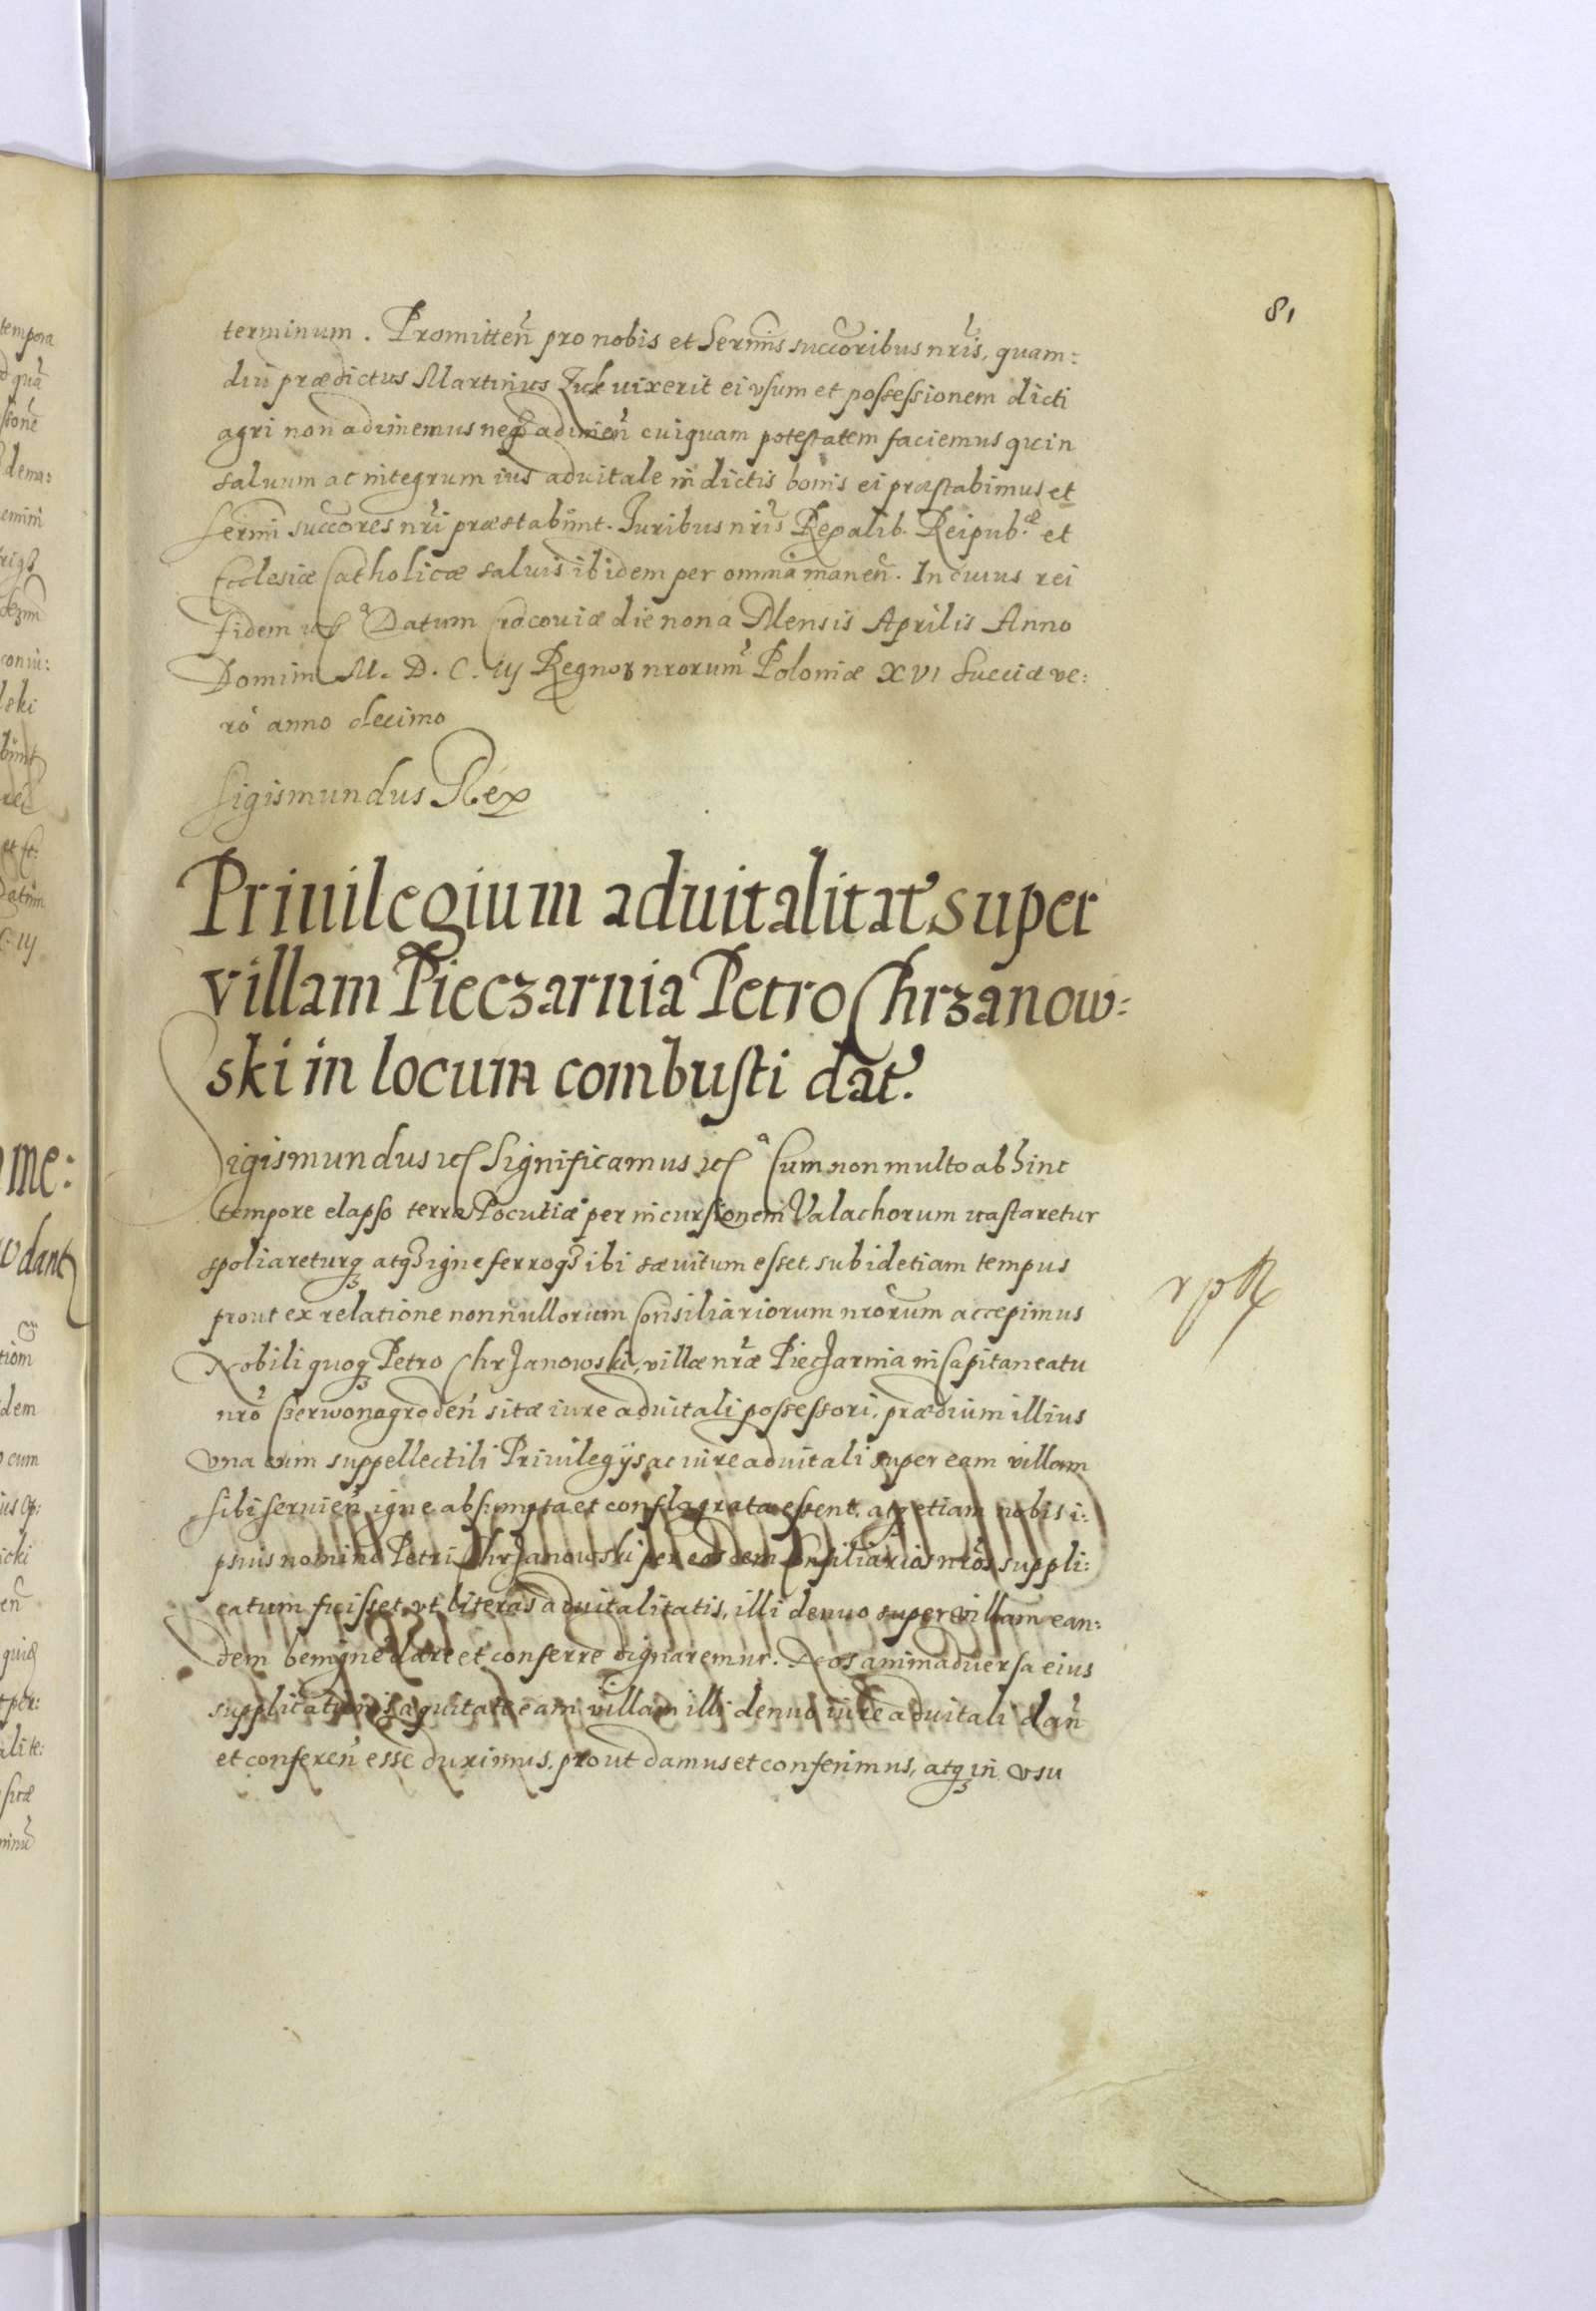 81
terminum. Promitteñ pro nobis et Sermis succoribus nris, quam:
diu prædictus Martinus Zuk uixerit ei vsum et possessionem dicti
agri non adimemus neq adimeñ cuiquam potestatem faciemus quin
saluum ac integrum ius aduitale in dictis bonis ei præstabimus et
Sermi succores nri præstabunt. Iuribus nris Regalib. Reipub. et
Ecclesiæ Catholicæ saluis ibidem per omnia maneñ. In cuius rei
fidem etc Datum Cracouiæ die nona Mensis Aprilis Anno
Domini M. D. C. iij Regnor nrorum Poloniæ XVI Sueciæ ve:
ro anno decimo
Sigismundus Rex
Priuilegium aduitalitat super
villam Pieczarnia Petro Chrzanow:
ski in locum combusti dat.
Sigismundus etc Significamus etc Cum non multo abhinc
tempore elapso terra Pocutiæ per incursionem Valachorum uastaretur
spoliareturq atq igne ferroq ibi sæuitum esset, sub id etiam tempus
prout ex relatione nonnullorum Consiliariorum nrorum accepimus
Nobili quoq Petro Chrzanowski, villæ nræ Pieczarnia in Capitaneatu
nro Czerwonogrodeñ sitæ iure aduitali possessori, prædium illius
vna cum suppellectili Priuilegijs ac iure aduitali super eam villam
sibi seruieñ igne absumpta et conflagrata essent, atq etiam nobis i:
psius nomine Petri Chrzanowski per eosdem Consiliarios nros suppli:
catum fuisset, vt literas aduitalitatis, illi denuo super villam ean:
dem benigne dare et conferre dignaremur. Nos animaduersa eius
supplicationis æquitate eam villam illi denuo iure aduitali dañ
et confereñ esse duximus, prout damus et conferimus, atq in vsu